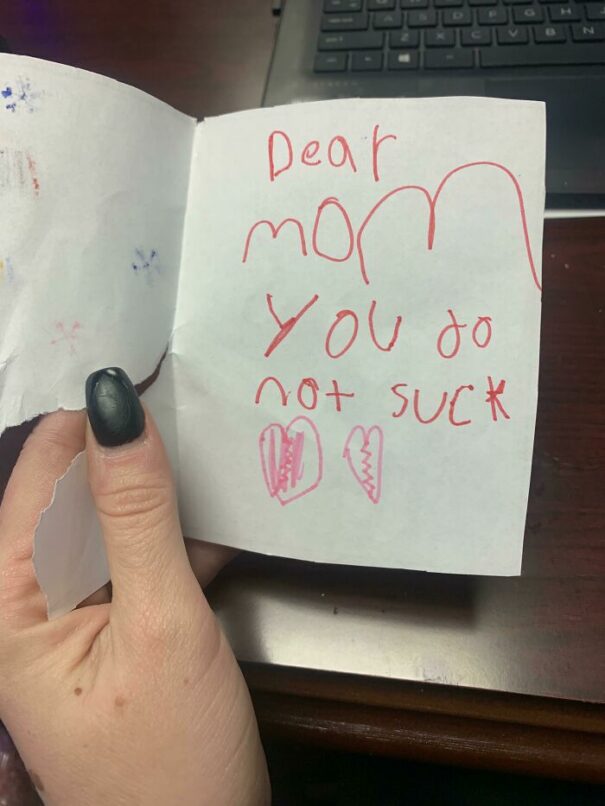 Dear
mom
You do
not suck